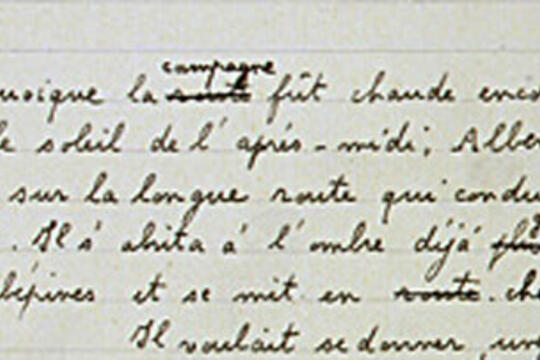 campagne
la route fût chaude
le soleil de l'après-midi, Albe
sur la longue route qui condu
. Il s'abrita à l'ombre déjà
et se mit en route. che
Il voulait se donner un